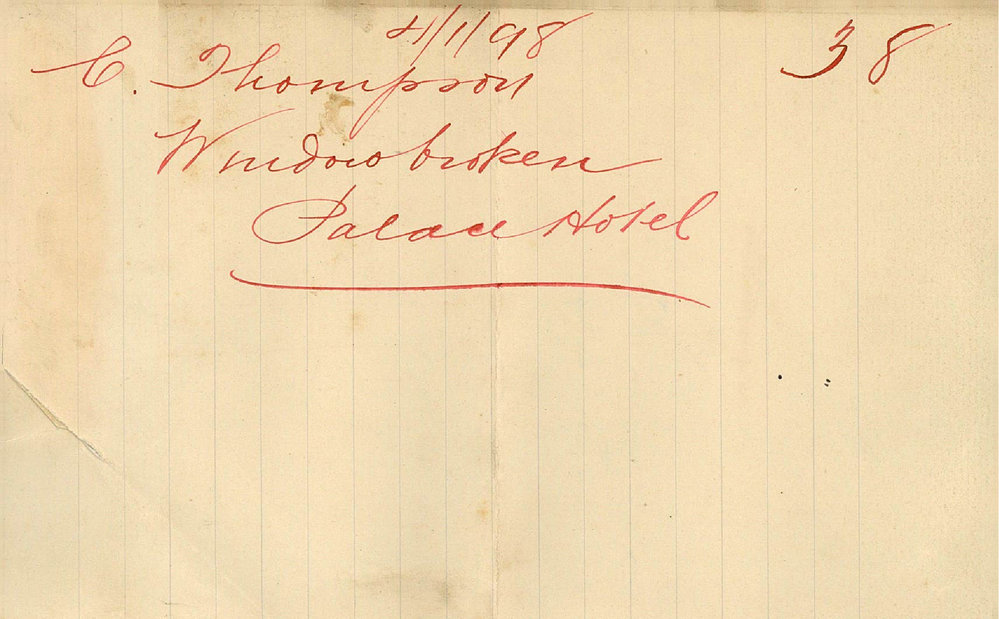 4/1/98 38
C. Thompson
Window broken
Palace Hotel